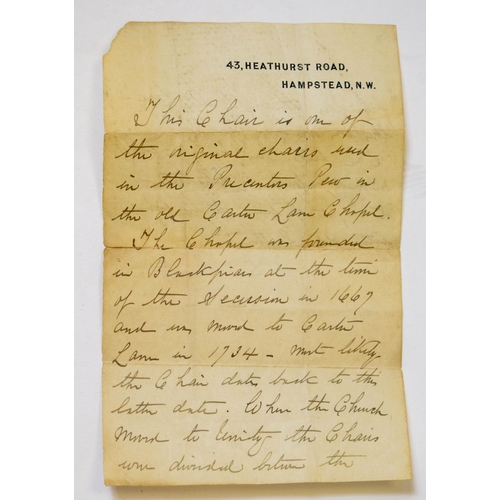 43, HEATHURST ROAD,
HAMPSTEAD, N.W.
This Chair is one of
the original chairs used
in the Precentors Pew in
the old Carter Lane Chapel.
The Chapel was founded
in Blackfriars at the time
of the Secession in 1667
and was moved to Carter
Lane in 1734 - most likely
the Chair dates back to this
latter date. When the Church
moved to Unity the Chairs
were divided between the